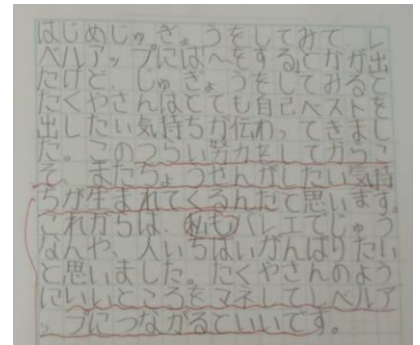 はじめじゅぎょうをしてみて、レ
ベルアップには「～をする」とかが出
たけど、じゅぎょうをしてみると
たくやさんはとても自己ベストを
出したい気持ちが伝わってきまし
た。このつらい努力をしてからこ
そ、またちょうせんがしたい気持
ちが生まれてくるんだと思います。
これからは、私もバレエでじゅう
なんや、人いちばいがんばりたい
と思いました。たくやさんのよう
にいいところをマネしてレベルア
ップにつながるといいです。